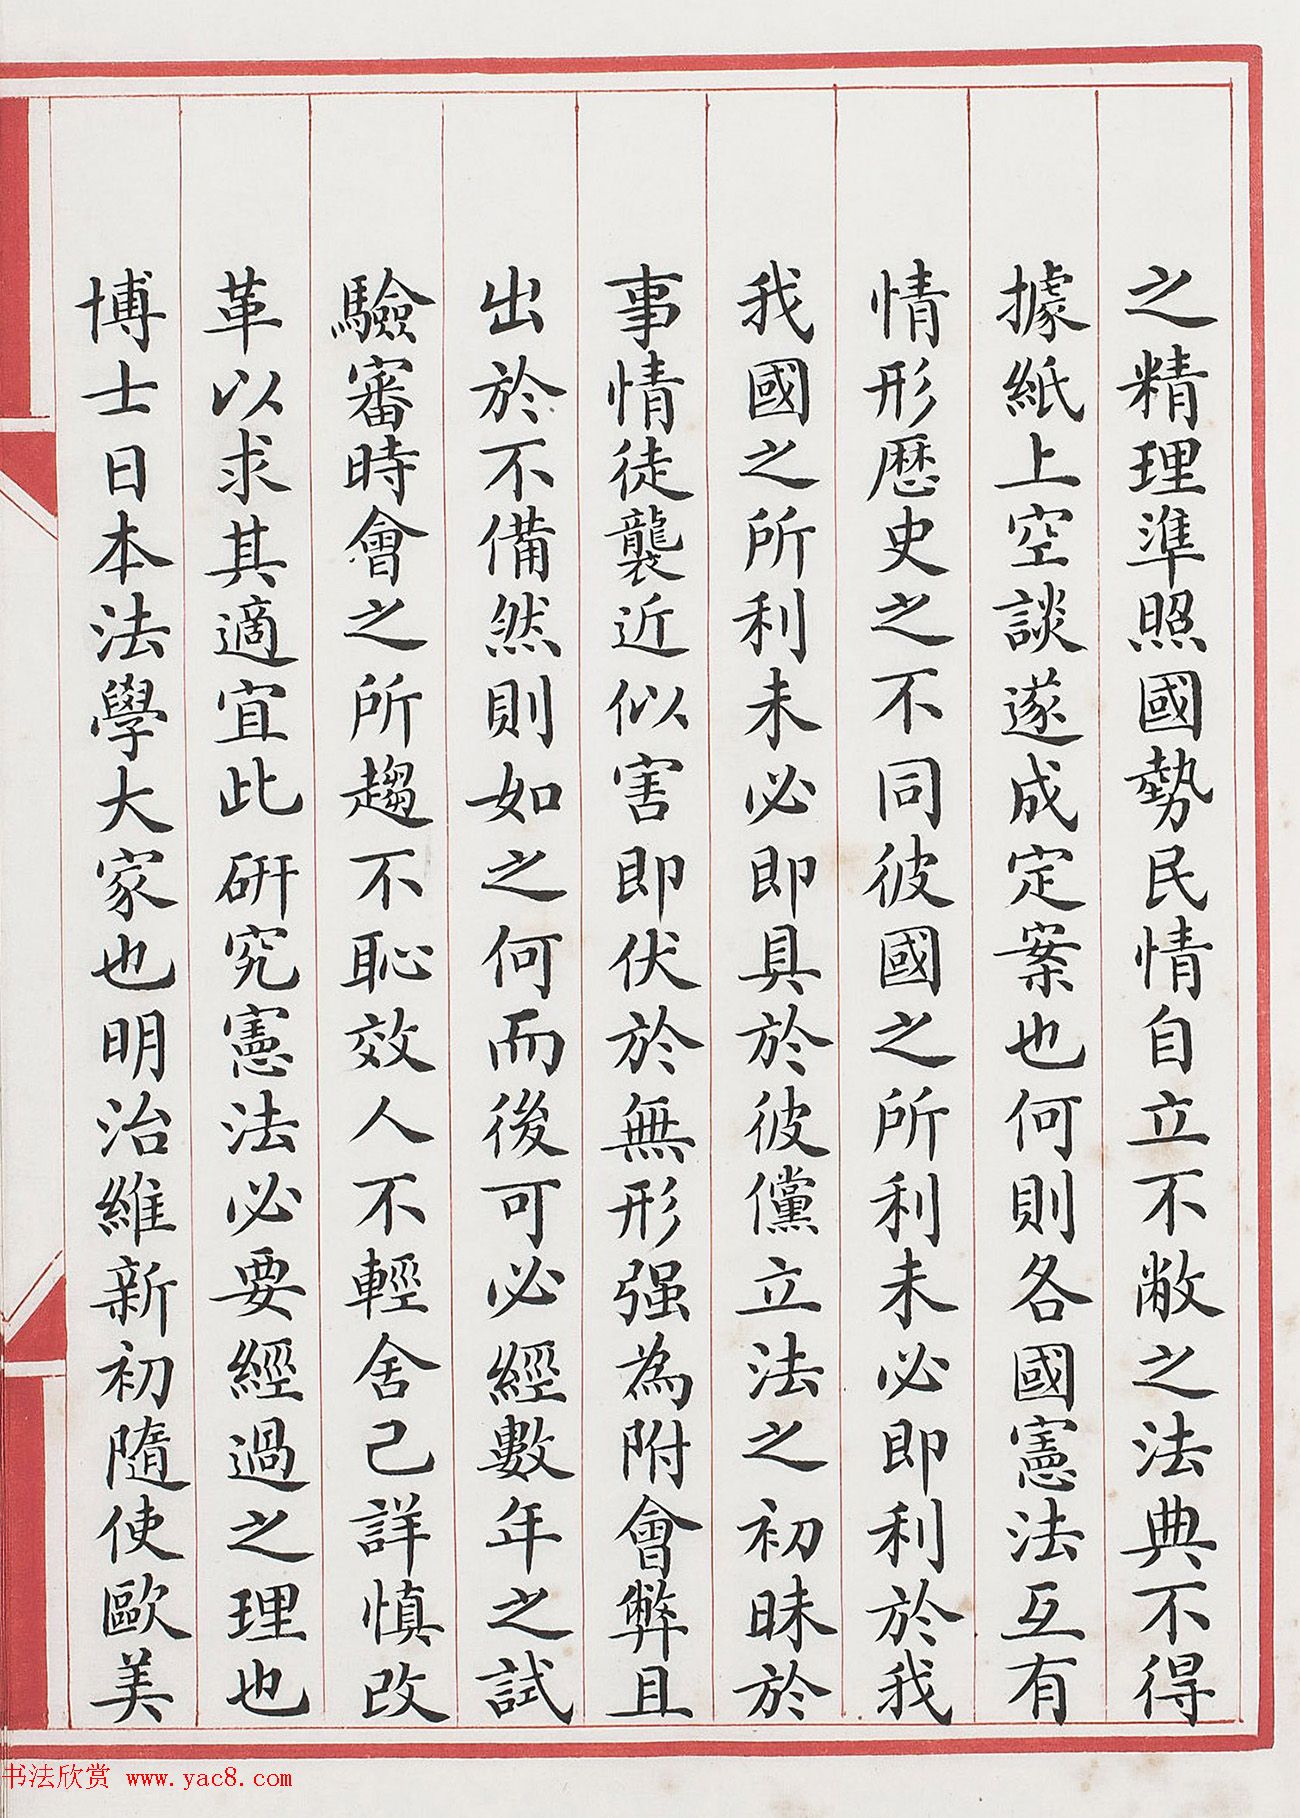 之精理準照國勢民情自立不敝之法典不得
據紙上空談遂成定案也何則各國憲法互有
情形歷史之不同彼國之所利未必即利於我
我國之所利未必即具於彼儻立法之初昧於
事情徒襲近似害即伏於無形强為附會弊且
出於不備然則如之何而後可必經數年之試
驗審時會之所趨不恥效人不輕舍己詳慎改
革以求其適宜此研究憲法必要經過之理也
博士日本法學大家也明治維新初隨使歐美
书法欣赏 www.yac8.com